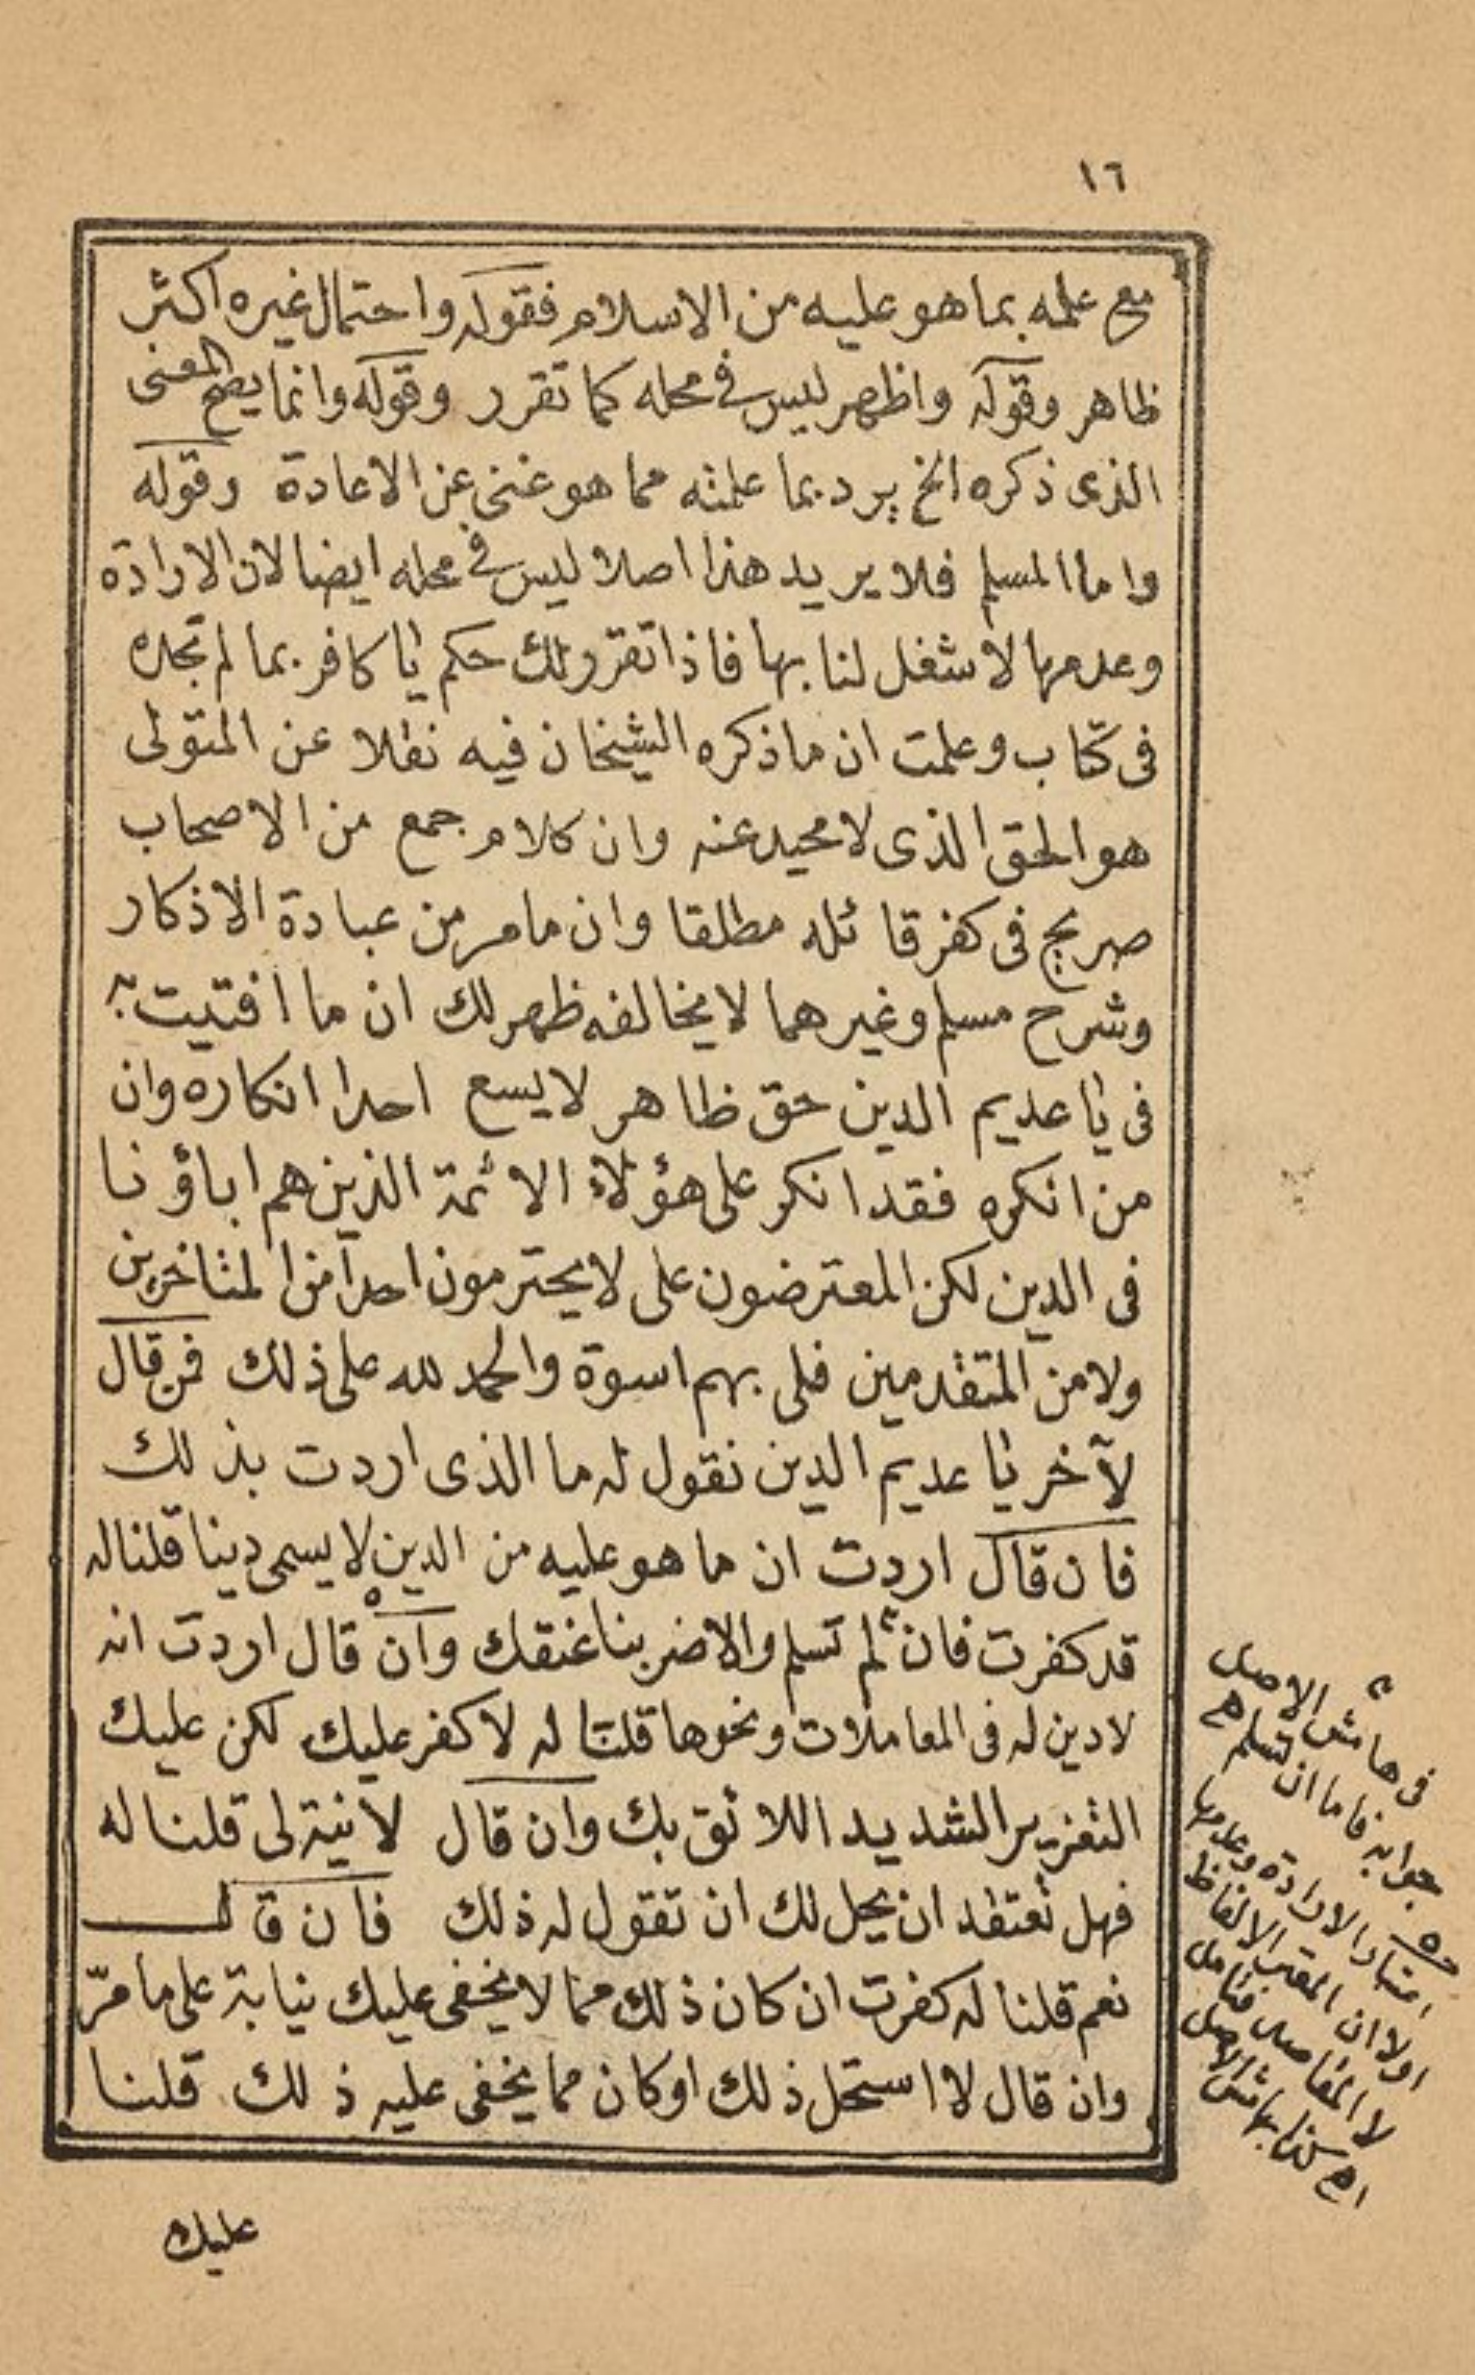 ١٦
مع علمه بما هو عليه من الاسلام فقوله واحتمال غيره اكثر
ظاهر وقوله واظهر ليس في محله كما تقرر وقوله وانما يصح المعنى
الذى ذكره الخ يرد بما علمته مما هو غنى عن الاعادة وقوله
واما المسلم فلا يريد هذا اصلا ليس في محله ايضا لان الارادة
وعدمها لا شغل لنا بها فاذا تقرر لك حكم يا كافر بما لم تجده
فى كتاب وعلمت ان ما ذكره الشيخان فيه نقلا عن المتولى
هو الحق الذى لا محيد عنه وان كلام جمع من الاصحاب
صريح فى كفر قائله مطلقا وان ما مر من عبادة الاذكار
وشرح مسلم وغيرهما لا يخالفه ظهر لك ان ما افتيت به
فى يا عديم الدين حق ظاهر لا يسع احدا انكاره وان
من انكره فقد انكر على هؤلاء الائمة الذين هم اباؤنا
فى الدين لكن المعترضون على لا يحترمون احدا من المتاخرين
ولا من المتقدمين فلى بهم اسوة والحمد لله على ذلك فمن قال
لآخر يا عديم الدين نقول له ما الذى اردت بذلك
فان قال اردت ان ما هو عليه من الدين لا يسمى دينا قلنا له
قد كفرت فان لم تسلم والا ضربنا عنقك وان قال اردت انه
لا دين له فى المعاملات ونحوها قلنا له لا كفر عليك لكن عليك
التعزير الشديد اللائق بك وان قال لا نية لى قلنا له
فهل تعتقد ان يحل لك ان تقول له ذلك فان قال
نعم قلنا له كفرت ان كان ذلك مما لا يخفى عليك نيابة على ما مرّ
وان قال لا استحل ذلك او كان مما يخفى عليه ذلك قلنا
عليك
فى هامش الاصل
جوابه فاما ان تسلم
الارادة وعدمها
اولا ان المعتبر الالفاظ
لا المقاصد فتامل
اه كذا بهامش الاصل